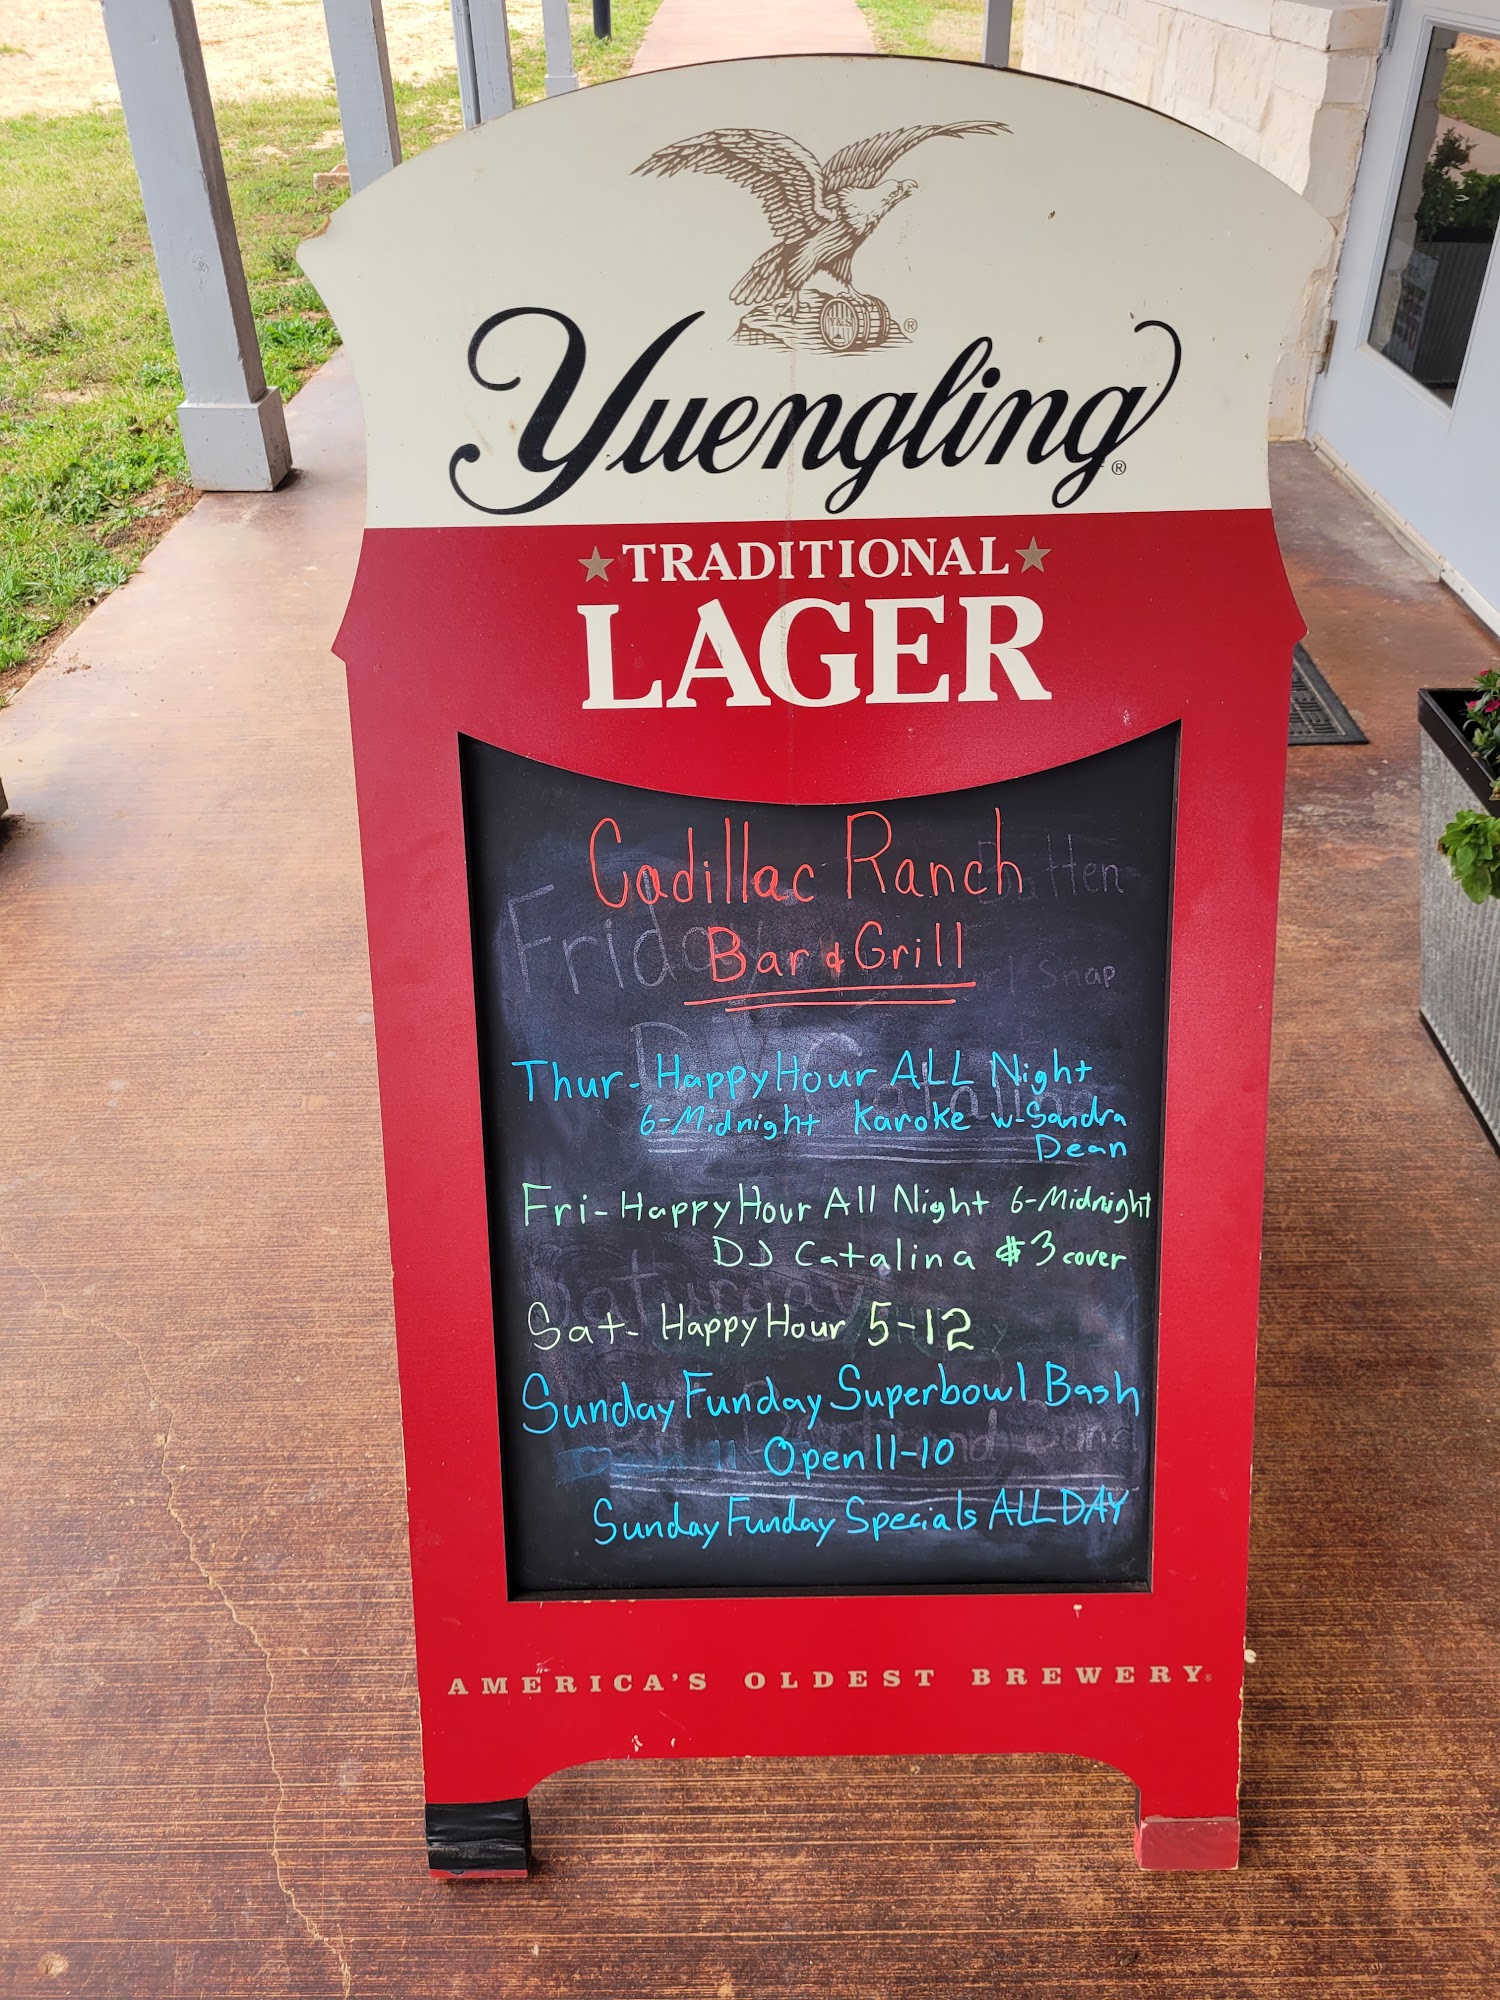 Y&S
Yuengling®
TRADITIONAL
LAGER
Cadillac Ranch
Bar & Grill
Thur- Happy Hour ALL Night
6-Midnight Karoke w-Sandra
Dean
Fri- Happy Hour All Night 6-Midnight
DJ Catalina $3 cover
Sat- Happy Hour 5-12
Sunday Funday Superbowl Bash
Open 11-10
Sunday Funday Specials ALL DAY
AMERICA'S OLDEST BREWERY®